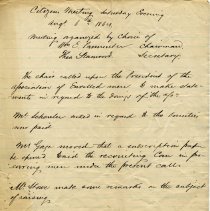 Citizens Meeting Saturday Evening
Augt 6th 1864
Meeting organized by Choice of
Wm C. Chairman
Leonard Secretary.
The chair called upon the President of the
association of Enrolled men to make state-
ments in regard to the doings of the assn
Mr. Schouler asked in regard to the bounties
now paid
Mr Gage moved that a subscription paper
be opened to aid the recruiting Com in pro-
curing men under the present call.
Mr Stone made some remarks on the subject
of raising